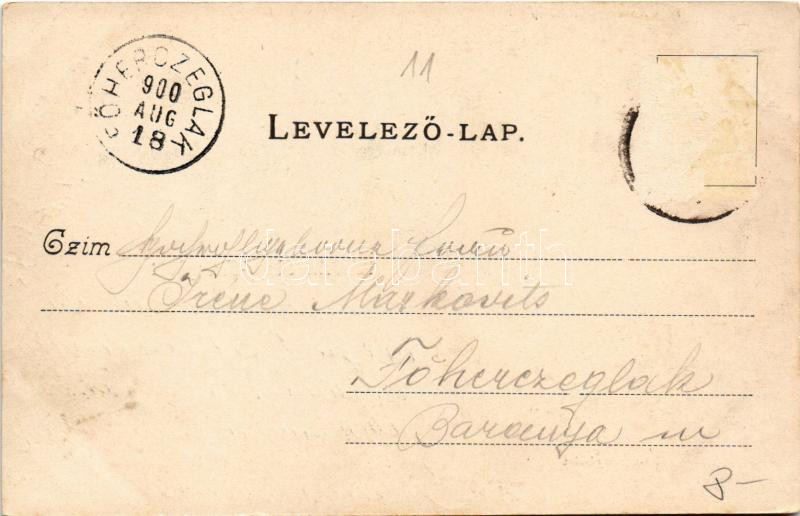 FŐHERCZEGLAK
900
AUG
18
11
LEVELEZŐ-LAP.
Czim
Iréne Markovits
Főherczeglak
Baranya m
8-
darabanth